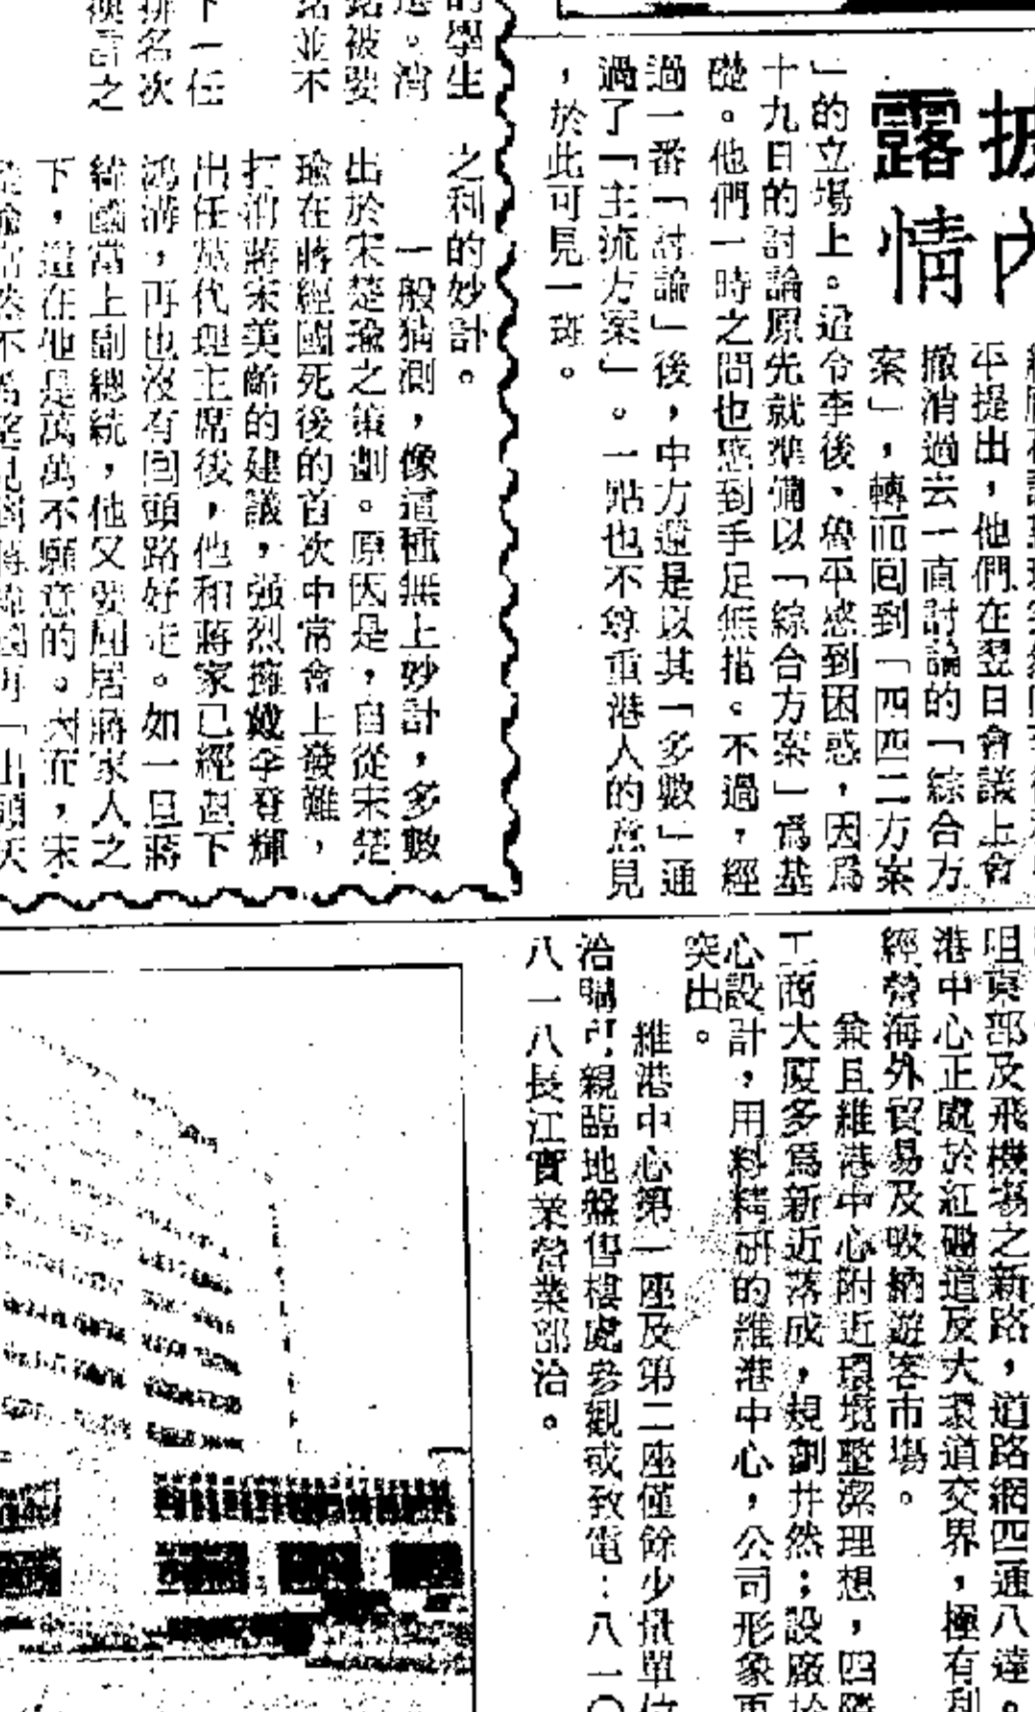 披
露
內
情
平提出，他們在翌日會議上會
撤消過去一直討論的「綜合方
案」，轉而回到「四四二方案
」的立場上。迫令李後、魯平感到困惑，因爲
十九日的討論原先就準備以「綜合方案」爲基
礎。他們一時之間也感到手足無措。不過，經
過一番「討論」後，中方還是以其「多數」通
過了「主流方案」。一點也不尊重港人的意見
，於此可見一斑。
的學生
之利的妙計。
一般猜測，像這種無上妙計，多數
出於宋楚瑜之策劃。原因是，自從宋楚
瑜在蔣經國死後的首次中常會上發難，
打消蔣宋美齡的建議，强烈擁戴李登輝
出任黨代理主席後，他和蔣家已經劃下
鴻溝，再也沒有回頭路好走。如一旦蔣
緯國當上副總統，他又要屈居蔣家人之
下，這在他是萬萬不願意的。因而，宋
下一任
排名次
咀東部及飛機場之新路，道路網四通八達。
港中心正處於紅磡道及大環道交界，極有利
經營海外貿易及吸納遊客市場。
兼且維港中心附近環境整潔理想，四隣
工商大廈多爲新近落成，規劃井然；設廠於
心設計，用料精研的維港中心，公司形象更
突出。
維港中心第一座及第二座僅餘少量單位
洽購可親臨地盤售樓處參觀或致電：八一〇
八一八長江實業營業部洽。